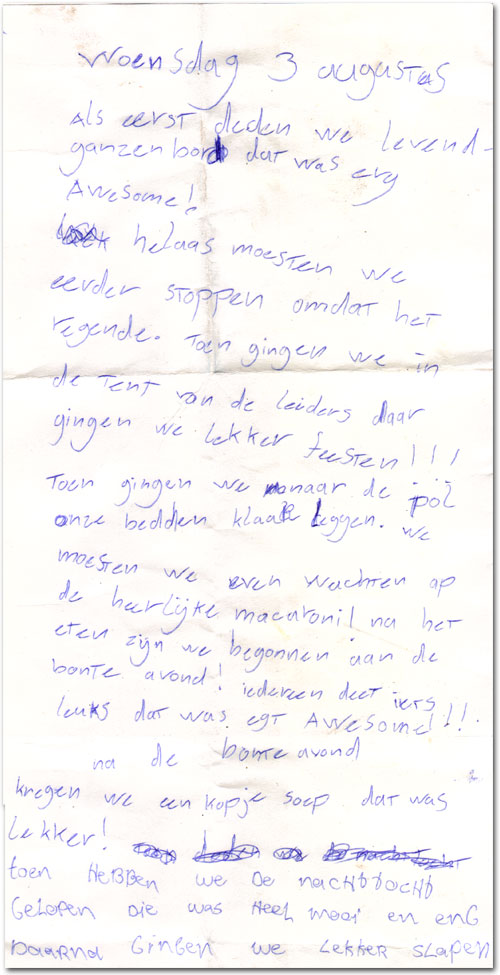 Woensdag 3 augustus
Als eerst deden we levend-
ganzenbord dat was erg
Awesome!
helaas moesten we
eerder stoppen omdat het
regende. Toen gingen we in
de tent van de leiders daar
gingen we lekker feesten!!!
Toen gingen we naar de pol
onze bedden klaar leggen. we
moesten we even wachten op
de heerlijke macaroni! na het
eten zijn we begonnen aan de
bonte avond! iedereen deet iets
leuks dat was egt Awesome!!!
na de bonte avond
kregen we een kopje soep dat was
lekker!
toen HeBBen we De nachttocht
Gelopen Die was Heel mooi en enG
Daarna GinGen we Lekker slapen